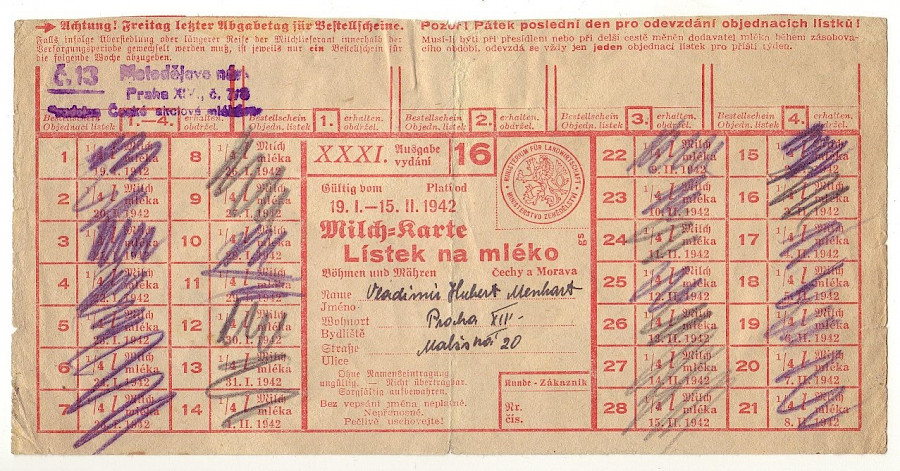 Achtung! Freitag letzter Abgabetag für Bestellscheine.
Falls infolge Übersiedlung oder längerer Reise der Milchlieferant innerhalb der
Versorgungsperiode gewechselt werden muß, ist jeweils nur ein Bestellschein für
die folgende Woche abzugeben.
Pozor! Pátek poslední den pro odevzdání objednacích lístků!
Musí-li býti při přesídlení nebo při delší cestě měněn dodavatel mléka během zásobova-
cího období, odevzdá se vždy jen jeden objednací lístek pro příští týden.
Č. 13
Praha XIV., č. 7/8
České akciové
Bestellschein 1.–4. erhalten.
Objednací lístek obdržel.
Bestellschein 1. erhalten.
Objednac. lístek obdržel.
Bestellschein 2. erhalten.
Objednac. lístek obdržel.
Bestellschein 3. erhalten.
Objednac. lístek obdržel.
Bestellschein 4. erhalten.
Objednac. lístek obdržel.
XXXI. Ausgabe
vydání
16
MINISTERIUM FÜR LANDWIRTSCHAFT
MINISTERSTVO ZEMĚDĚLSTVÍ
Gültig vom Platí od
19. I.—15. II. 1942
Milch-Karte
Lístek na mléko
gs
Böhmen und Mähren Čechy a Morava
Name Vladimir Hubert Menhart
Jméno
Wohnort Praha XIII-
Bydliště
Straße 20
Ulice
Ohne Namenseintragung
ungültig. — Nicht übertragbar.
Sorgfältig aufbewahren.
Bez vepsání jména neplatné.
Nepřenosné.
Pečlivě uschovejte!
Kunde - Zákazník
Nr.
čís.
1 Milch
mléka
19. I. 1942
8 1/4 l Milch
mléka
26. I. 1942
2 Milch
mléka
20. I. 1942
9 1/4 l Milch
mléka
27. I. 1942
3
10 1/4 l Milch
mléka
28. I. 1942
4 Milch
mléka
22. I. 1942
11 1/4 l Milch
mléka
29. I. 1942
5 Milch
mléka
12
mléka
30. I. 1942
6 1/4 l Milch
mléka
24. I. 1942
13 1/4 l Milch
mléka
31. I. 1942
7 1/4 l Milch
mléka
25. I. 1942
14 1/4 l Milch
mléka
1. II. 1942
22 1/4 l Milch
mléka
9. II. 1942
15 Milch
mléka
2. II. 1942
23 1/4 l Milch
mléka
10. II. 1942
16 1/4 l Milch
mléka
3. II. 1942
24 1/4 l Milch
mléka
11. II. 1942
17 1/4 l Milch
mléka
4. II. 1942
25 1/4 l Milch
mléka
12. II. 1942
18 1/4 l Milch
mléka
5. II. 1942
26 1/4 l Milch
mléka
13. II. 1942
19 1/4 l Milch
mléka
6. II. 1942
27 1/4 l Milch
mléka
14. II. 1942
20 1/4 l Milch
mléka
7. II. 1942
28 1/4 l Milch
mléka
15. II. 1942
21 1/4 l Milch
mléka
8. II. 1942